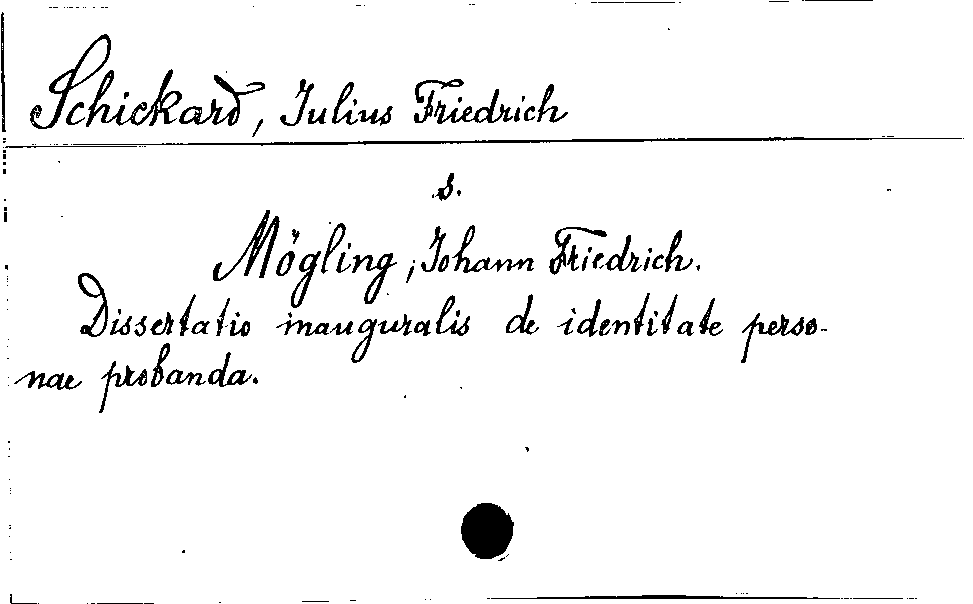 Schickard, Julius Friedrich
s.
Mögling, Johann Friedrich.
Dissertatio inauguralis de identitate perso-
nae probanda.